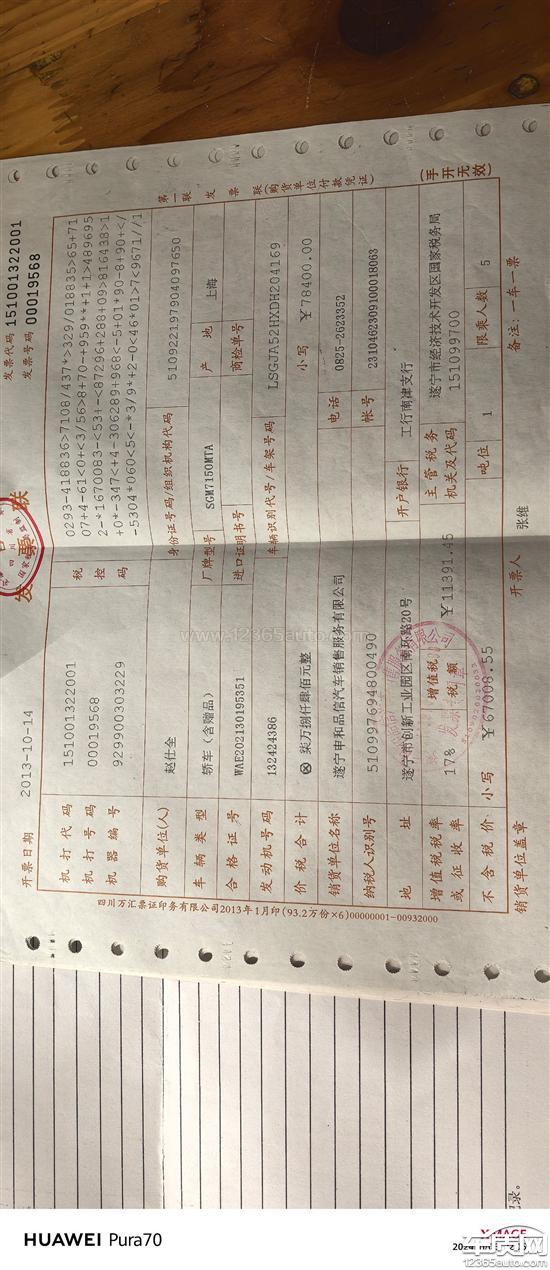 发票联
发票代码 151001322001
发票号码 00019568
开票日期 2013-10-14
机打代码 151001322001
机打号码 00019568
机器编号 929900303229
税控码
0293-418836>7108/437*>329/018835>65+71
07+4-61<0+<3/56>8+70-+959**+1+1>489695
2-*1670083-<53+-<87296+288+09>816438>1
+0*-347<+4-306289+968<-5+01*90-8+90+</
-5304*060<5<-*3/9*+2-0<46*01>7<9671//1
购货单位(人) 赵仕全 身份证号码/组织机构代码 510922197904097650
车辆类型 轿车(含赠品) 厂牌型号 SGM7150MTA 产地 上海
合格证号 WAE202130195351 进口证明书号 商检单号
发动机号码 132424386 车辆识别代号/车架号码 LSGJA52HXDH204169
价税合计 ⊗ 柒万捌仟肆佰元整 小写 ¥78400.00
销货单位名称 遂宁申和品信汽车销售服务有限公司 电话 0825-2623352
纳税人识别号 510997694800490 帐号 2310462309100018063
地址 遂宁市创新工业园区南环路20号 开户银行 工行南津支行
增值税税率或征收率 17% 增值税税额 ¥11391.45 主管税务机关及代码 遂宁市经济技术开发区国家税务局 151099700
不含税价 小写 ¥67008.55 吨位 1 限乘人数 5
销货单位盖章 开票人 张维 备注:一车一票
第一联 发票联(购货单位付款凭证)
(手开无效)
四川万汇票证印务有限公司2013年1月印(93.2万份×6)00000001-00932000
www.12365auto.com
HUAWEI Pura70
XMAGE
车质网
12365auto.com